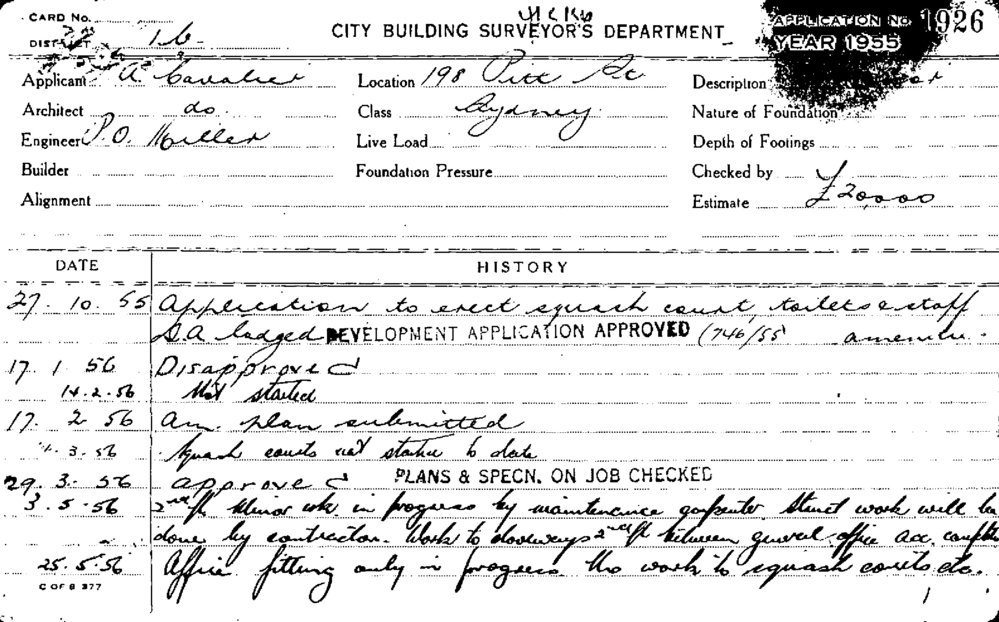 CARD No.
CITY BUILDING SURVEYOR'S DEPARTMENT
APPLICATION No 1926
YEAR 1955
DISTRICT 16
Applicant A. Cavalier
Location 198 Pitt St
Description
Architect do.
Class Sydney
Nature of Foundation
Engineer P.O. Miller
Live Load
Depth of Footings
Builder
Foundation Pressure
Checked by
Alignment
Estimate £20,000
DATE HISTORY
27. 10. 55 Application to erect squash court toilets & staff
D.A lodged DEVELOPMENT APPLICATION APPROVED (746/55 amenin.
17. 1 56 Disapproved
14.2.56 Not started
17. 2 56 Am. plan submitted
3.56 Squash courts not started to date
29. 3. 56 approved PLANS & SPECN. ON JOB CHECKED
3.5.56 2nd fl Minor wk in progress by maintenance carpenter Struct work will be
done by contractor. Work to doorways 2nd fl between general office acc.
25.5.56 Office fitting only in progress. No work to squash courts etc.
C OF S 377